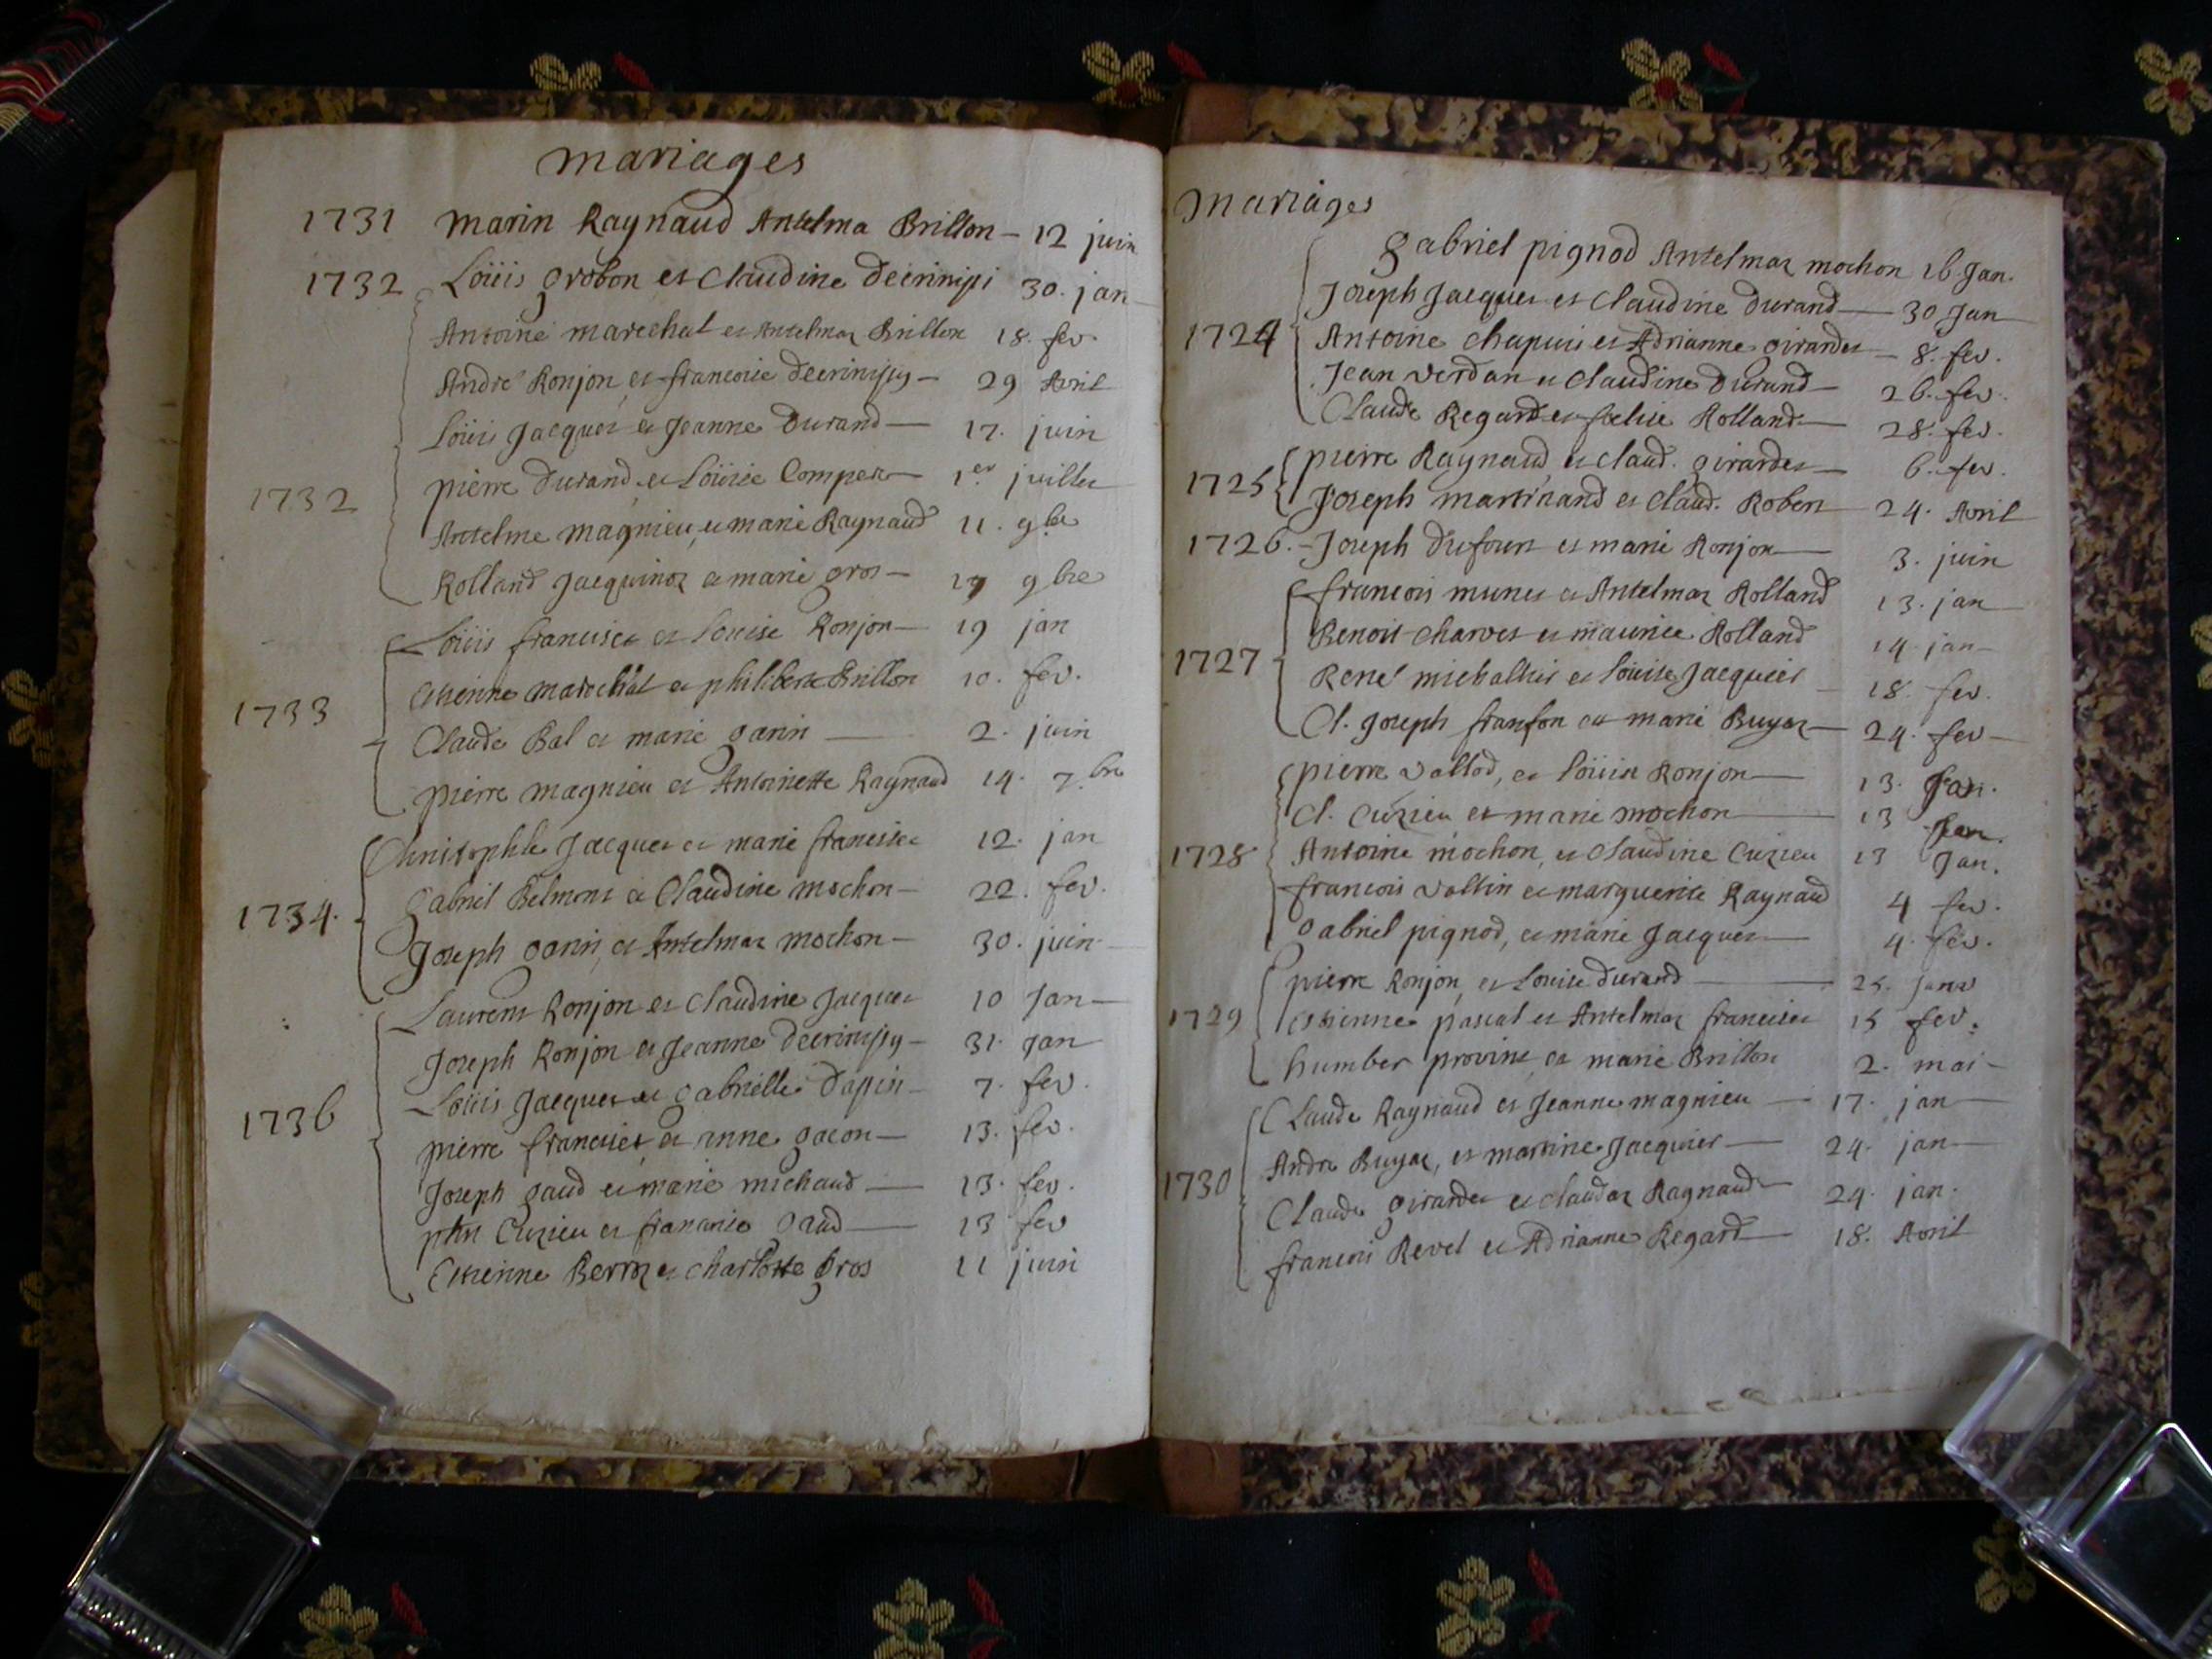 mariages
1731 marin Raynaud Antelma Brillon - 12 juin
1732 Loüis grobon et Claudine decrinipi 30. jan
Antoine marechal et Antelmaz Brillon 18. fev.
André Ronjon, et francoise decrinipy - 29 Avril
Loüis Jacquet et Jeanne Durand - 17. juin
1732 pierre durand et Loüise Comper - 1.er juillet
Antelme magnieu, et marie Raynaud 11. 9bre
Rolland Jacquinoz et marie gros - 19 9bre
Loüis franciset et Louise Ronjon - 19 jan
Etienne marechal et philiberte Brillon 10. fev.
1733 Claude Bal et marie garin - 2. juin
pierre magnieu et Antoinette Raynaud 14. 7.bre
Christophle Jacquet et marie franciset 12. jan
Gabriel Belmont et Claudine mochon - 22. fev.
1734. Joseph garin, et Antelmaz mochon - 30. juin
Laurent Ronjon et Claudine Jacquet 10 Jan
Joseph Ronjon et Jeanne decrinipy - 31. jan
Loüis Jacquet et gabrielle Dapin - 7. fev.
1736 pierre franciset, et anne gacon - 13. fev.
Joseph gaud et marie michaud - 13. fev.
Cuzieu et francoise gaud - 13 fev
Etienne Berroz et charlotte gros 11 juin
mariages
gabriel pignod Antelmaz mochon 16 Jan.
Joseph Jacquet et Claudine durand - 30 Jan
1724 Antoine chapuis et Adrianne girardet - 8. fev.
Jean verdan et Claudine durand - 26. fev.
Claude Regard et foelise Rolland - 28. fev.
pierre Raynaud et claud. girardet - 6. fev.
1725 Joseph martinand et claud. Robert 24. Avril
1726. - Joseph dufour et marie Ronjon - 3. juin
francois munet et Antelmaz Rolland 13. jan
Benoit charvet et maurice Rolland 14. jan
1727 René miehallier et Louise Jacquier 18. fev.
Cl. Joseph franson et marie Buyaz - 24. fev
pierre vallod, et Loüise Ronjon - 13. Jan.
Cl. Cuzieu et marie mochon 13 Jan.
1728 Antoine mochon, et Claudine Cuzieu 13 Jan.
francois vallin et marguerite Raynaud 4 fev.
gabriel pignod, et marie Jacquet - 4. fev.
pierre Ronjon, et Louise durand - 25. janv
1729 Etienne pascal et Antelmaz franciset 15 fev.
humber provint, et marie Brillon 2. mai
Claude Raynaud et Jeanne magnieu - 17. jan
André Buyaz, et martine Jacquier - 24. jan
1730 Claude girardet et claudaz Raynaud - 24. jan.
francois Revel et Adrianne Regard - 18. Avril